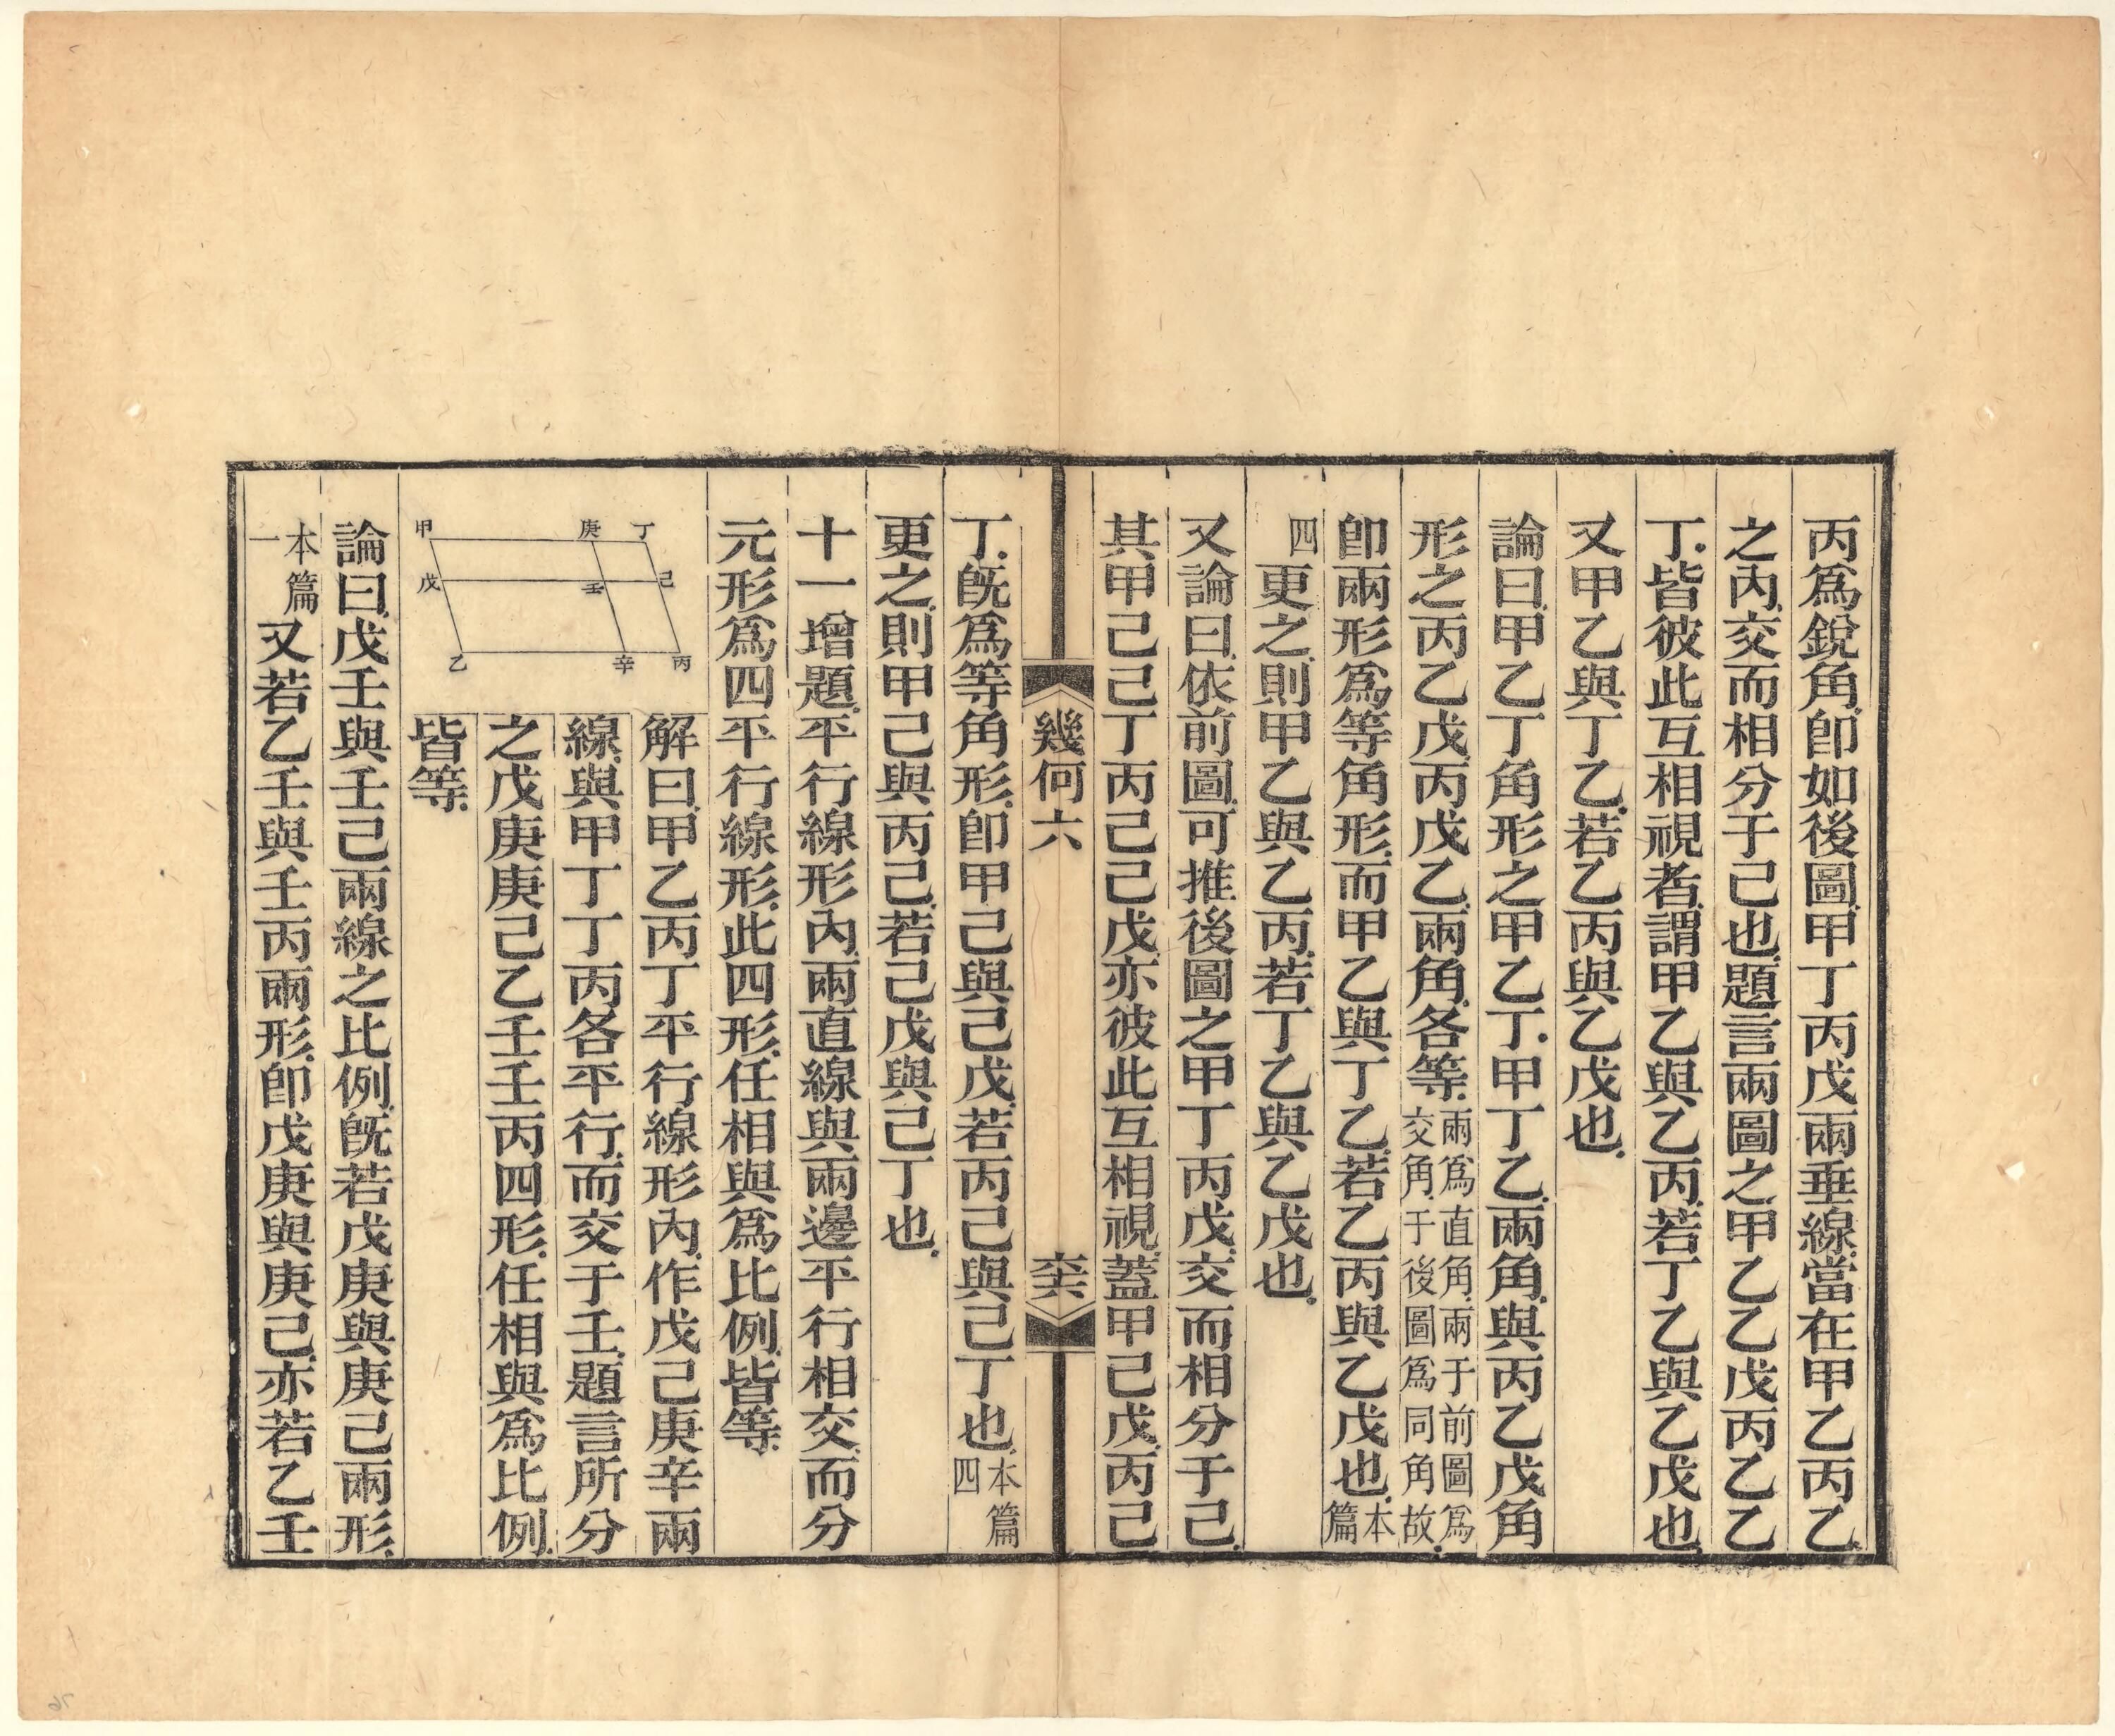 丙爲銳角.卽如後圖.甲丁丙戊兩垂線.當在甲乙丙乙
之內.交而相分于己也.題言兩圖之甲乙乙戊丙乙乙
丁.皆彼此互相視者.謂甲乙與乙丙.若丁乙與乙戊也.
又甲乙與丁乙.若乙丙與乙戊也.
論曰.甲乙丁角形之甲乙丁.甲丁乙.兩角.與丙乙戊角
形之丙乙戊.丙戊乙.兩角.各等.兩爲直角.兩于前圖爲
交角.于後圖爲同角故.
卽兩形爲等角形.而甲乙與丁乙.若乙丙與乙戊也.本篇
四更之.則甲乙與乙丙.若丁乙與乙戊也.
又論曰.依前圖.可推後圖之甲丁丙戊.交而相分于己.
其甲己己丁丙己己戊.亦彼此互相視.蓋甲己戊.丙己
幾何六
六十六
丁.旣爲等角形.卽甲己與己戊.若丙己與己丁也.本篇四
更之.則甲己與丙己.若己戊與己丁也.
十一增題.平行線形內.兩直線與兩邊平行相交.而分
元形爲四平行線形.此四形.任相與爲比例.皆等.
解曰.甲乙丙丁平行線形內.作戊己庚辛兩
線.與甲丁丁丙各平行.而交于壬.題言所分
之戊庚庚己乙壬壬丙四形.任相與爲比例.
皆等.
丁
庚
甲
己
壬
戊
丙
辛
乙
論曰.戊壬與壬己兩線之比例.旣若戊庚與庚己兩形.
本篇一又若乙壬與壬丙兩形.卽戊庚與庚己.亦若乙壬